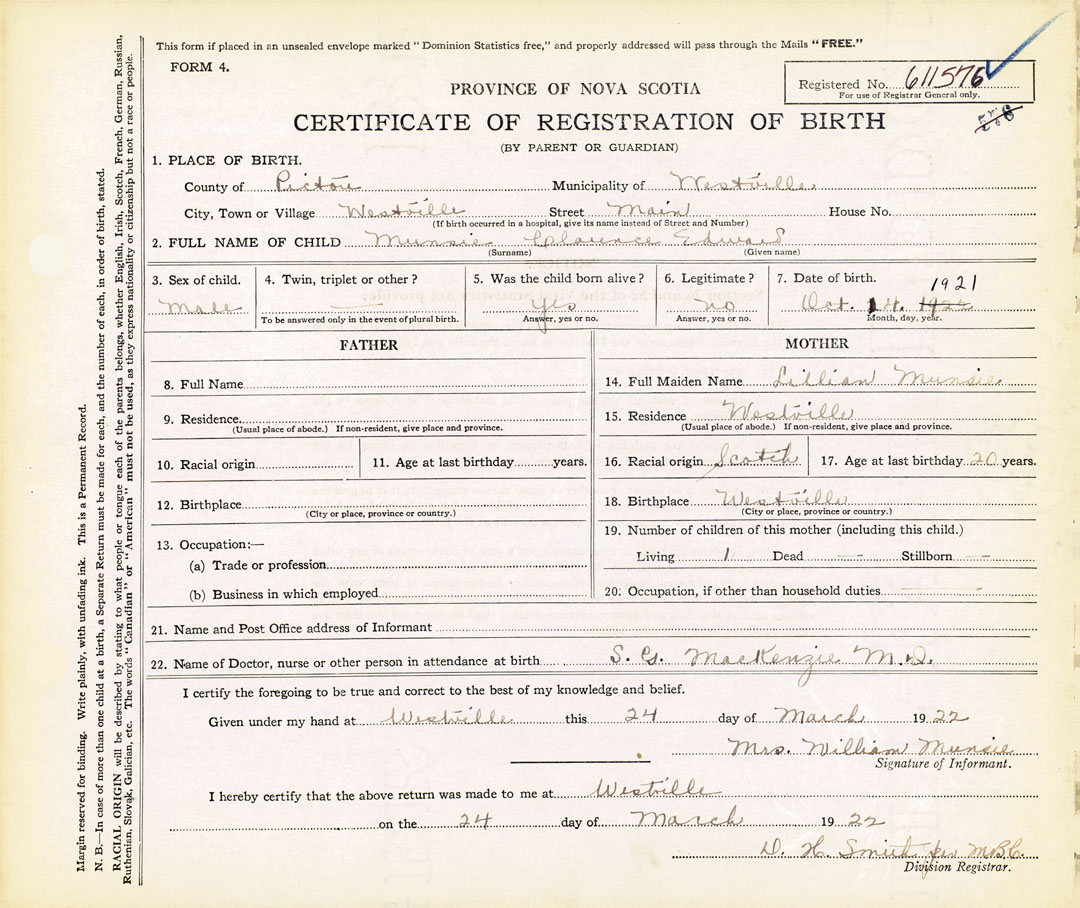 This form if placed in an unsealed envelope marked "Dominion Statistics free," and properly addressed will pass through the Mails "FREE."
FORM 4.
Registered No. 611576
For use of Registrar General only.
PROVINCE OF NOVA SCOTIA
CERTIFICATE OF REGISTRATION OF BIRTH
(BY PARENT OR GUARDIAN)
1. PLACE OF BIRTH.
County of Pictou Municipality of Westville
City, Town or Village Westville Street Main House No.
(If birth occurred in a hospital, give its name instead of Street and Number)
2. FULL NAME OF CHILD Munsie Clarence Edward
(Surname) (Given name)
3. Sex of child. 4. Twin, triplet or other? 5. Was the child born alive? 6. Legitimate? 7. Date of birth. 1921
Male — Yes no Oct. 14. 1922
To be answered only in the event of plural birth. Answer, yes or no. Answer, yes or no. Month, day, year.
FATHER MOTHER
8. Full Name 14. Full Maiden Name Lillian Munsie
9. Residence 15. Residence Westville
(Usual place of abode.) If non-resident, give place and province. (Usual place of abode.) If non-resident, give place and province.
10. Racial origin 11. Age at last birthday years. 16. Racial origin Scotch 17. Age at last birthday 20 years.
12. Birthplace 18. Birthplace Westville
(City or place, province or country.) (City or place, province or country.)
13. Occupation:— 19. Number of children of this mother (including this child.)
(a) Trade or profession Living 1 Dead — Stillborn —
(b) Business in which employed 20. Occupation, if other than household duties — -
21. Name and Post Office address of Informant
22. Name of Doctor, nurse or other person in attendance at birth S. G. MacKenzie M.D.
I certify the foregoing to be true and correct to the best of my knowledge and belief.
Given under my hand at Westville this 24 day of March 1922
Mrs. William Munsie
Signature of Informant.
I hereby certify that the above return was made to me at Westville
on the 24 day of March 1922
D. H. Smith per
Division Registrar.
Margin reserved for binding. Write plainly, with unfading ink. This is a Permanent Record.
N. B.—In case of more than one child at a birth, a Separate Return must be made for each, and the number of each, in order of birth, stated.
RACIAL ORIGIN will be described by stating to what people or tongue each of the parents belongs, whether English, Irish, Scotch, French, German, Russian,
Ruthenian, Slovak, Galician, etc. The words "Canadian" or "American" must not be used, as they express nationality or citizenship but not a race or people.